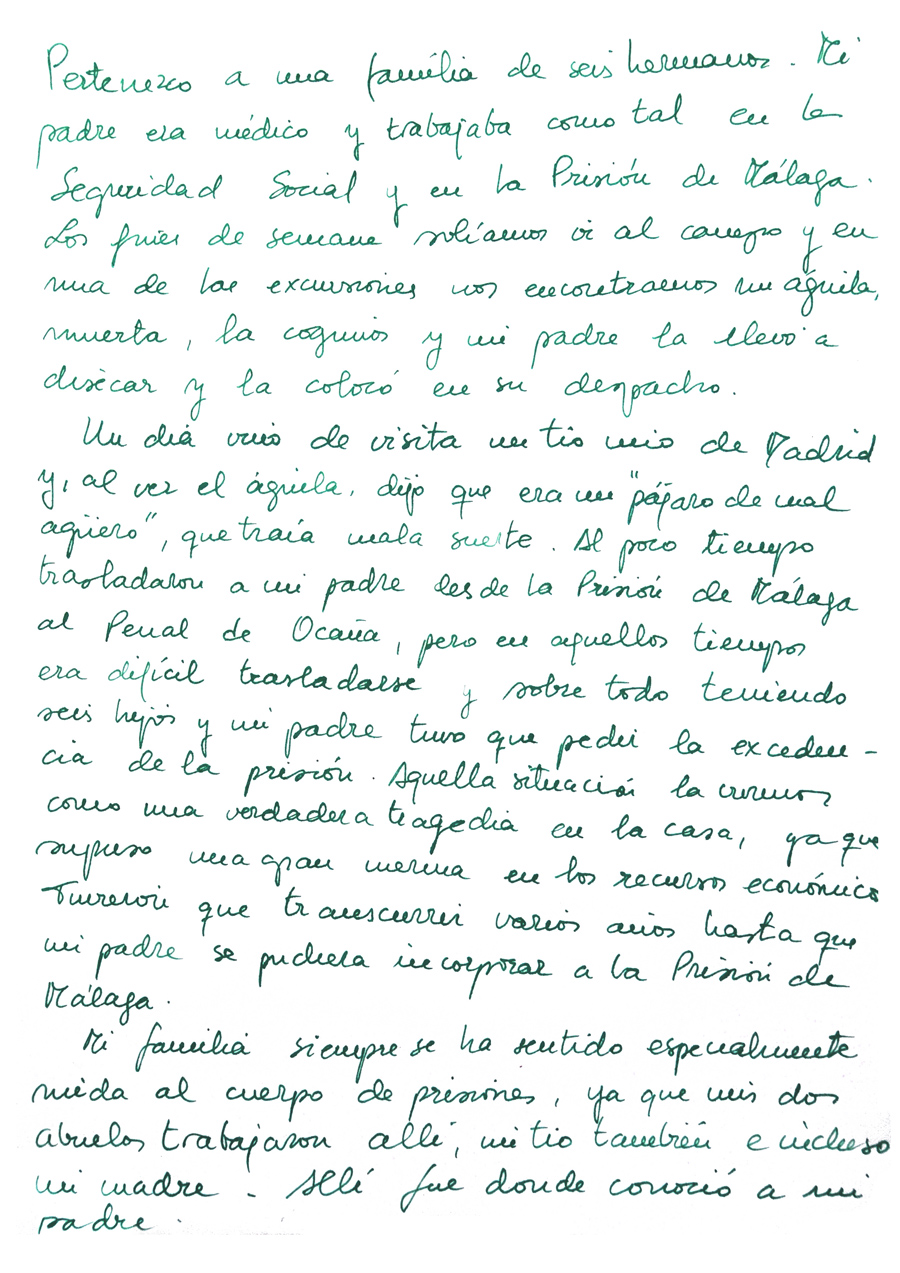 Pertenezco a una familia de seis hermanos. Mi
padre era médico y trabajaba como tal en la
Seguridad Social y en la Prisión de Málaga.
Los fines de semana solíamos ir al campo y en
una de las excursiones nos encontramos un águila,
muerta, la cogimos y mi padre la llevó a
disecar y la colocó en su despacho.
Un día vino de visita un tío mío de Madrid
y, al ver el águila, dijo que era un "pájaro de mal
agüero", que traía mala suerte. Al poco tiempo
trasladaron a mi padre desde la Prisión de Málaga
al Penal de Ocaña, pero en aquellos tiempos
era difícil trasladarse y sobre todo teniendo
seis hijos y mi padre tuvo que pedir la exceden-
cia de la prisión. Aquella situación la vivimos
como una verdadera tragedia en la casa, ya que
supuso una gran merma en los recursos económicos
Tuvieron que transcurrir varios años hasta que
mi padre se pudiera incorporar a la Prisión de
Málaga.
Mi familia siempre se ha sentido especialmente
unida al cuerpo de prisiones, ya que mis dos
abuelos trabajaron allí, mi tío también e incluso
mi madre. Allí fue donde conoció a mi
padre.